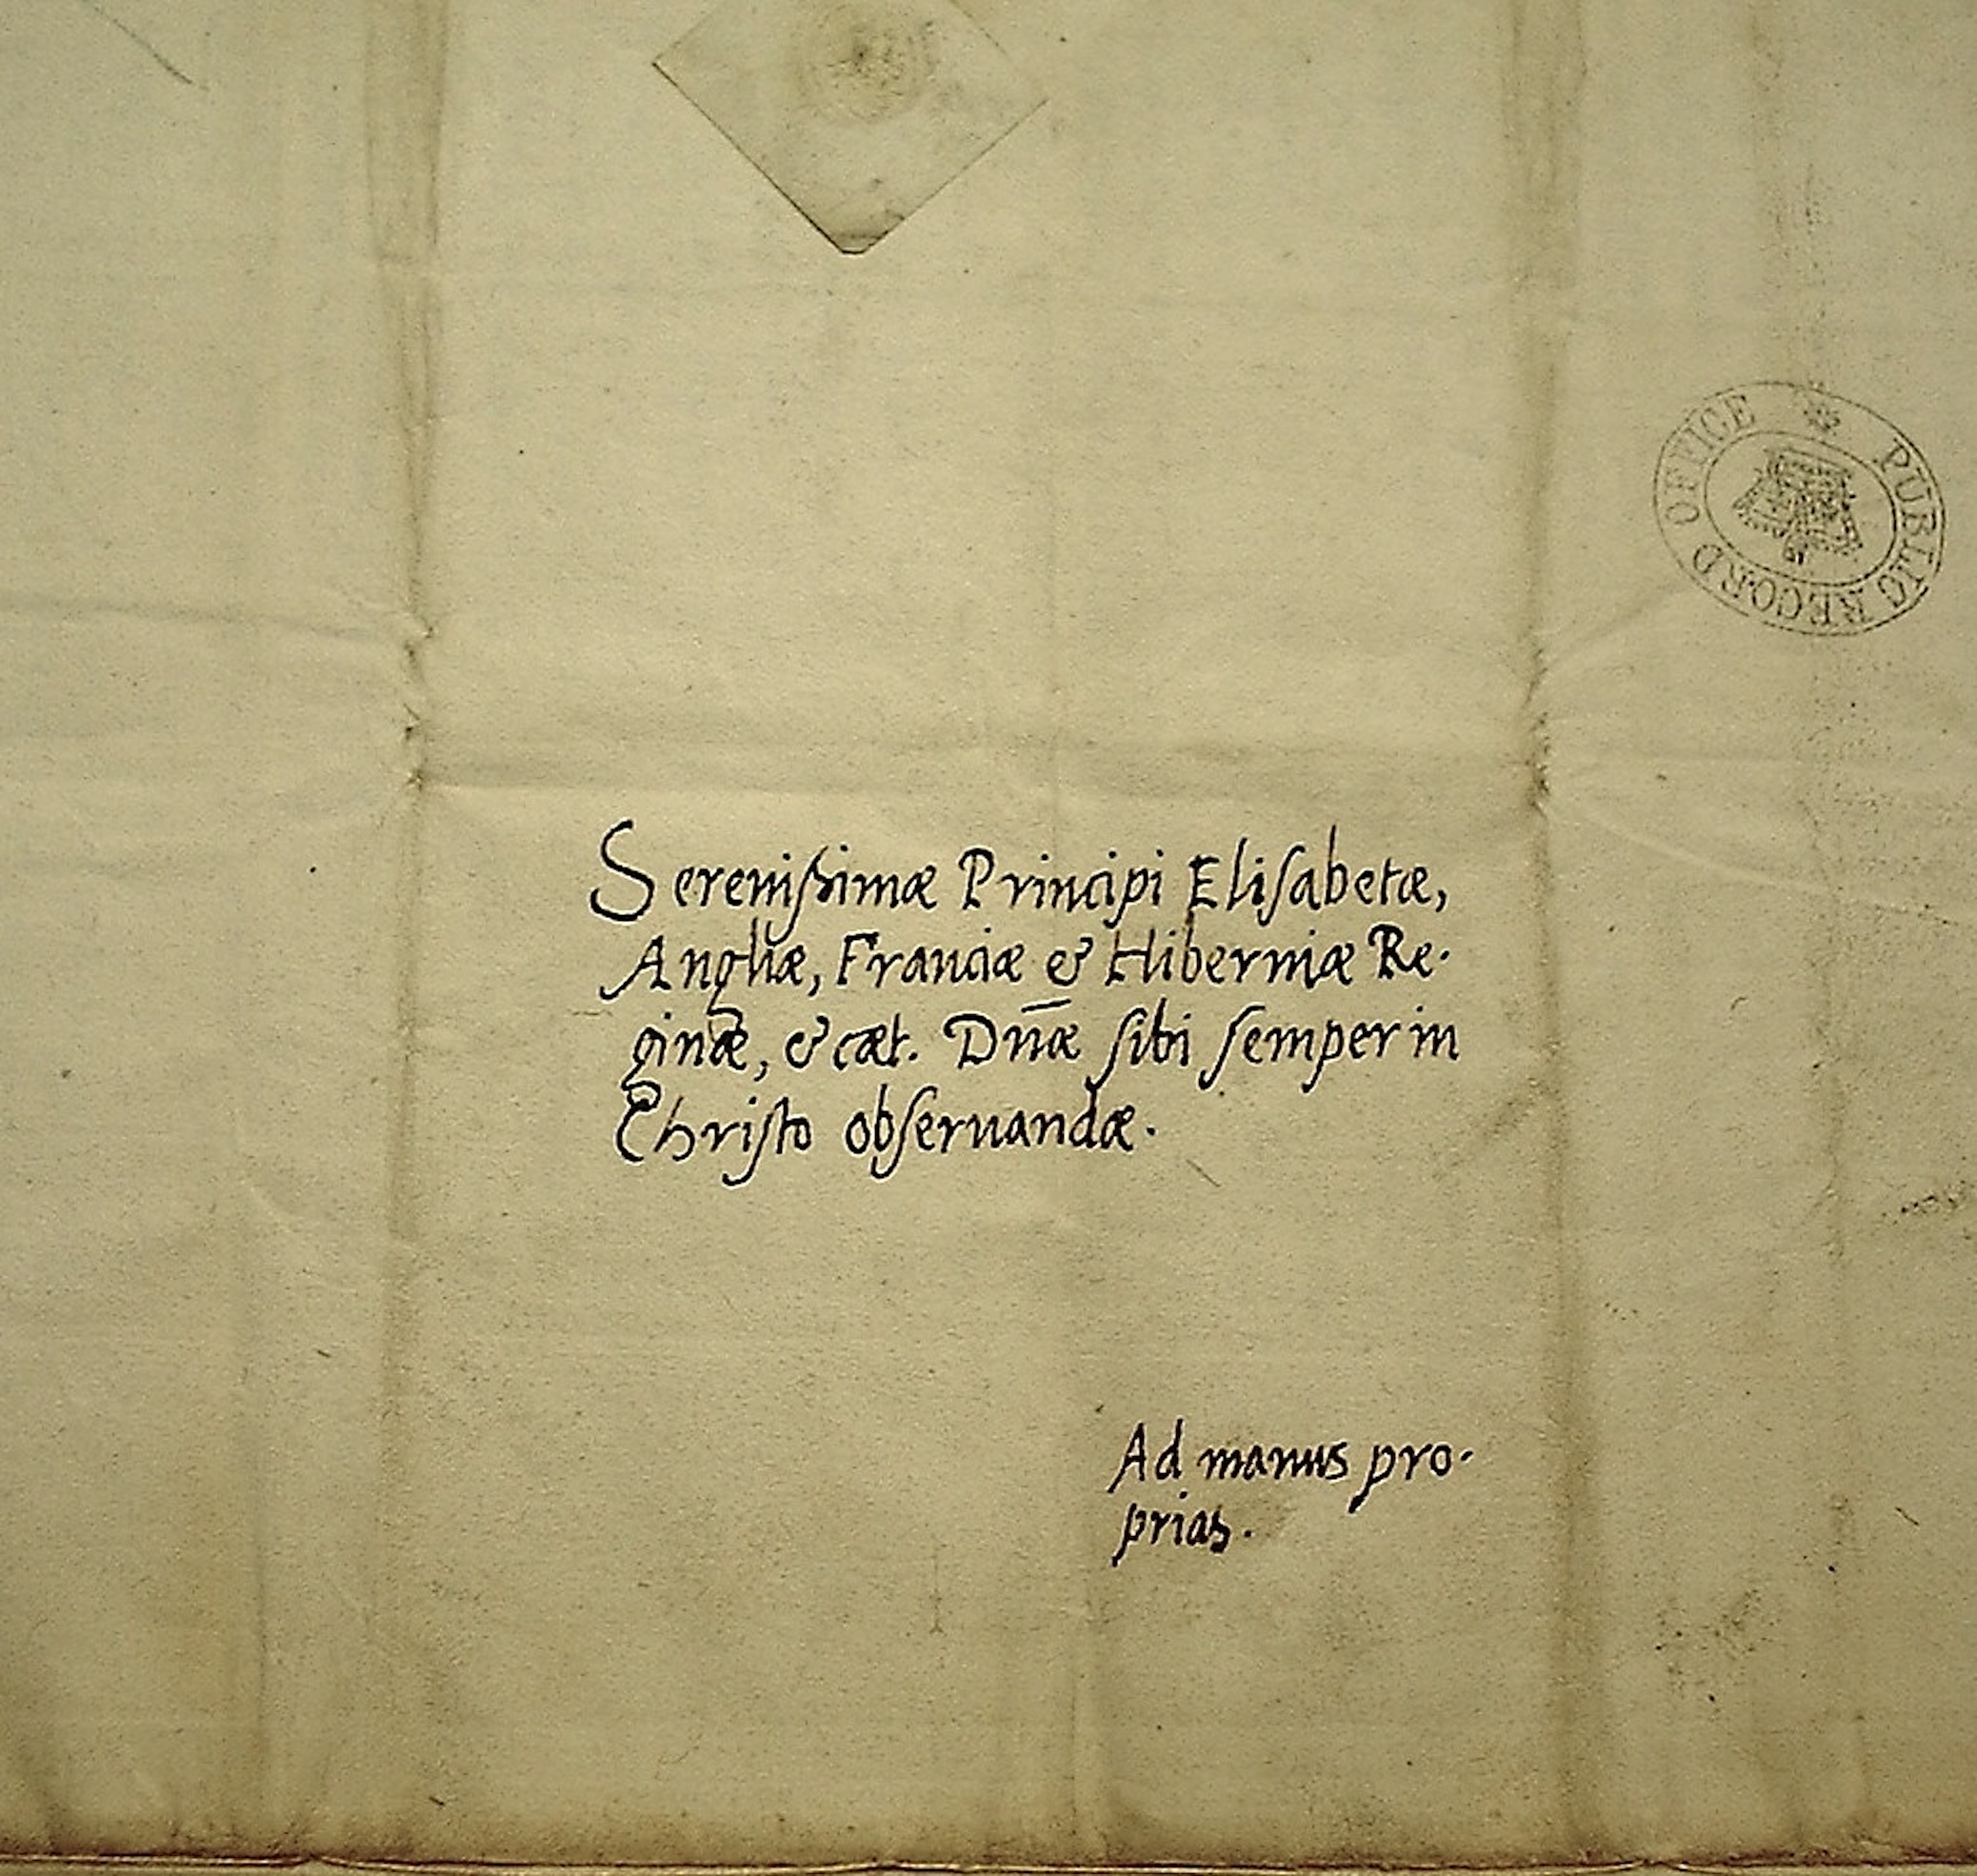 PUBLIC RECORD OFFICE
Sereniſsimæ Principi Eliſabetæ,
Angliæ, Franciæ & Hiberniæ Re-
ginæ, & cæt. Dn̄æ ſibi ſemper in
Chriſto obſeruandæ.
Ad manus pro-
prias.